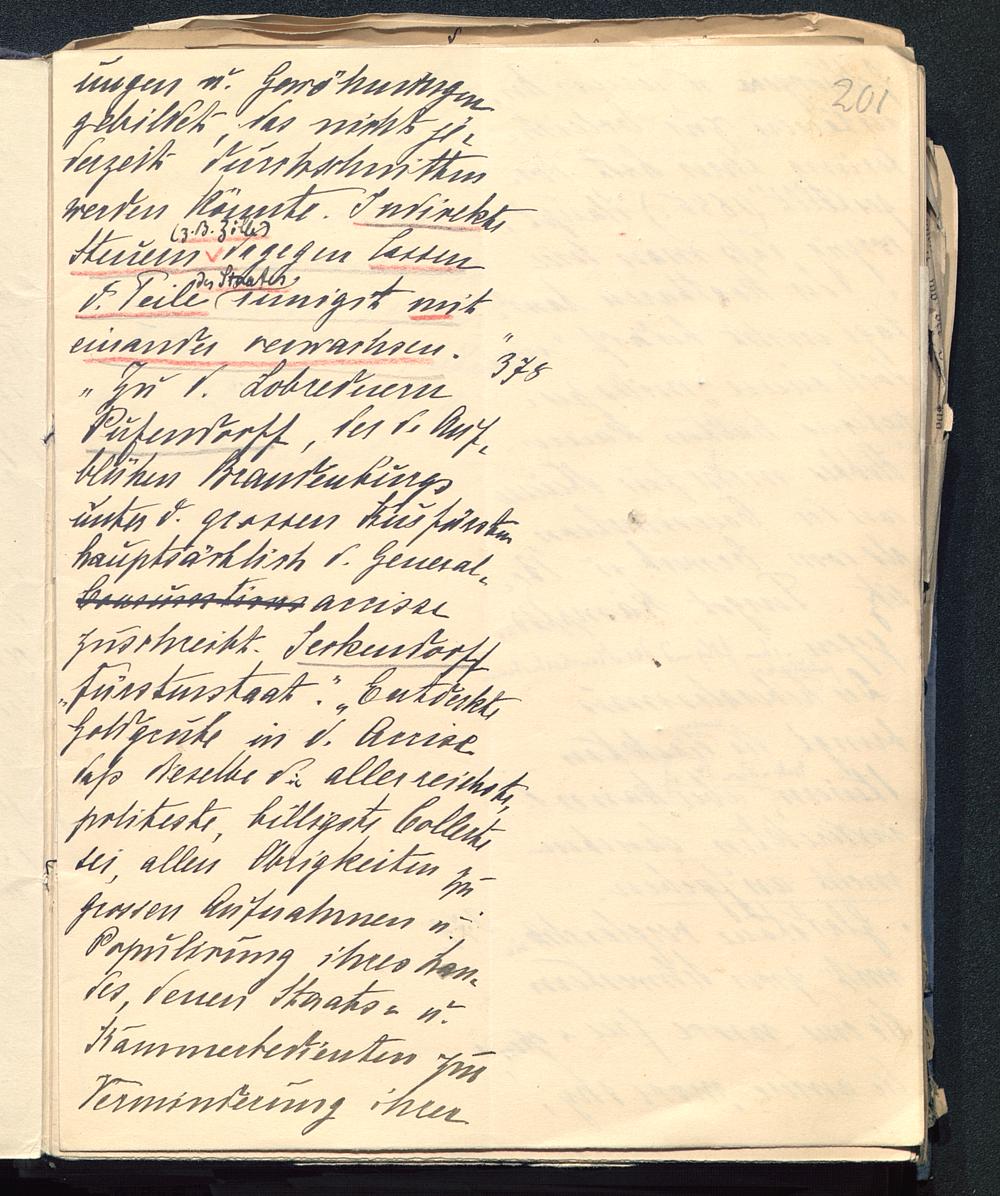 201
ungen u. Gewöhnungen
gebildet, das nicht je-
derzeit durchschnitten
werden könnte. Indirekte
(z.B. Zölle)
Steuern dagegen lassen
d. Teile des Staates innigst mit
einander verwachsen."
378
"Zu d. Lobrednern
Pufendorff, der d. Auf-
blühen Brandenburgs
unter d. grossen Kurfürsten
hauptsächlich d. General-
accise
zuschreibt. Seckendorff
"Fürstenstaat". "Entdeckte
Goldgrube in d. Accise
daß dieselbe die allerreichste,
politeste, billigste Collecte
sei, allen Obrigkeiten zu
grossen Aufnahmen u.
Populirung ihres Lan-
des, denen Staats- u.
Kammerbedienten zur
Verminderung ihrer